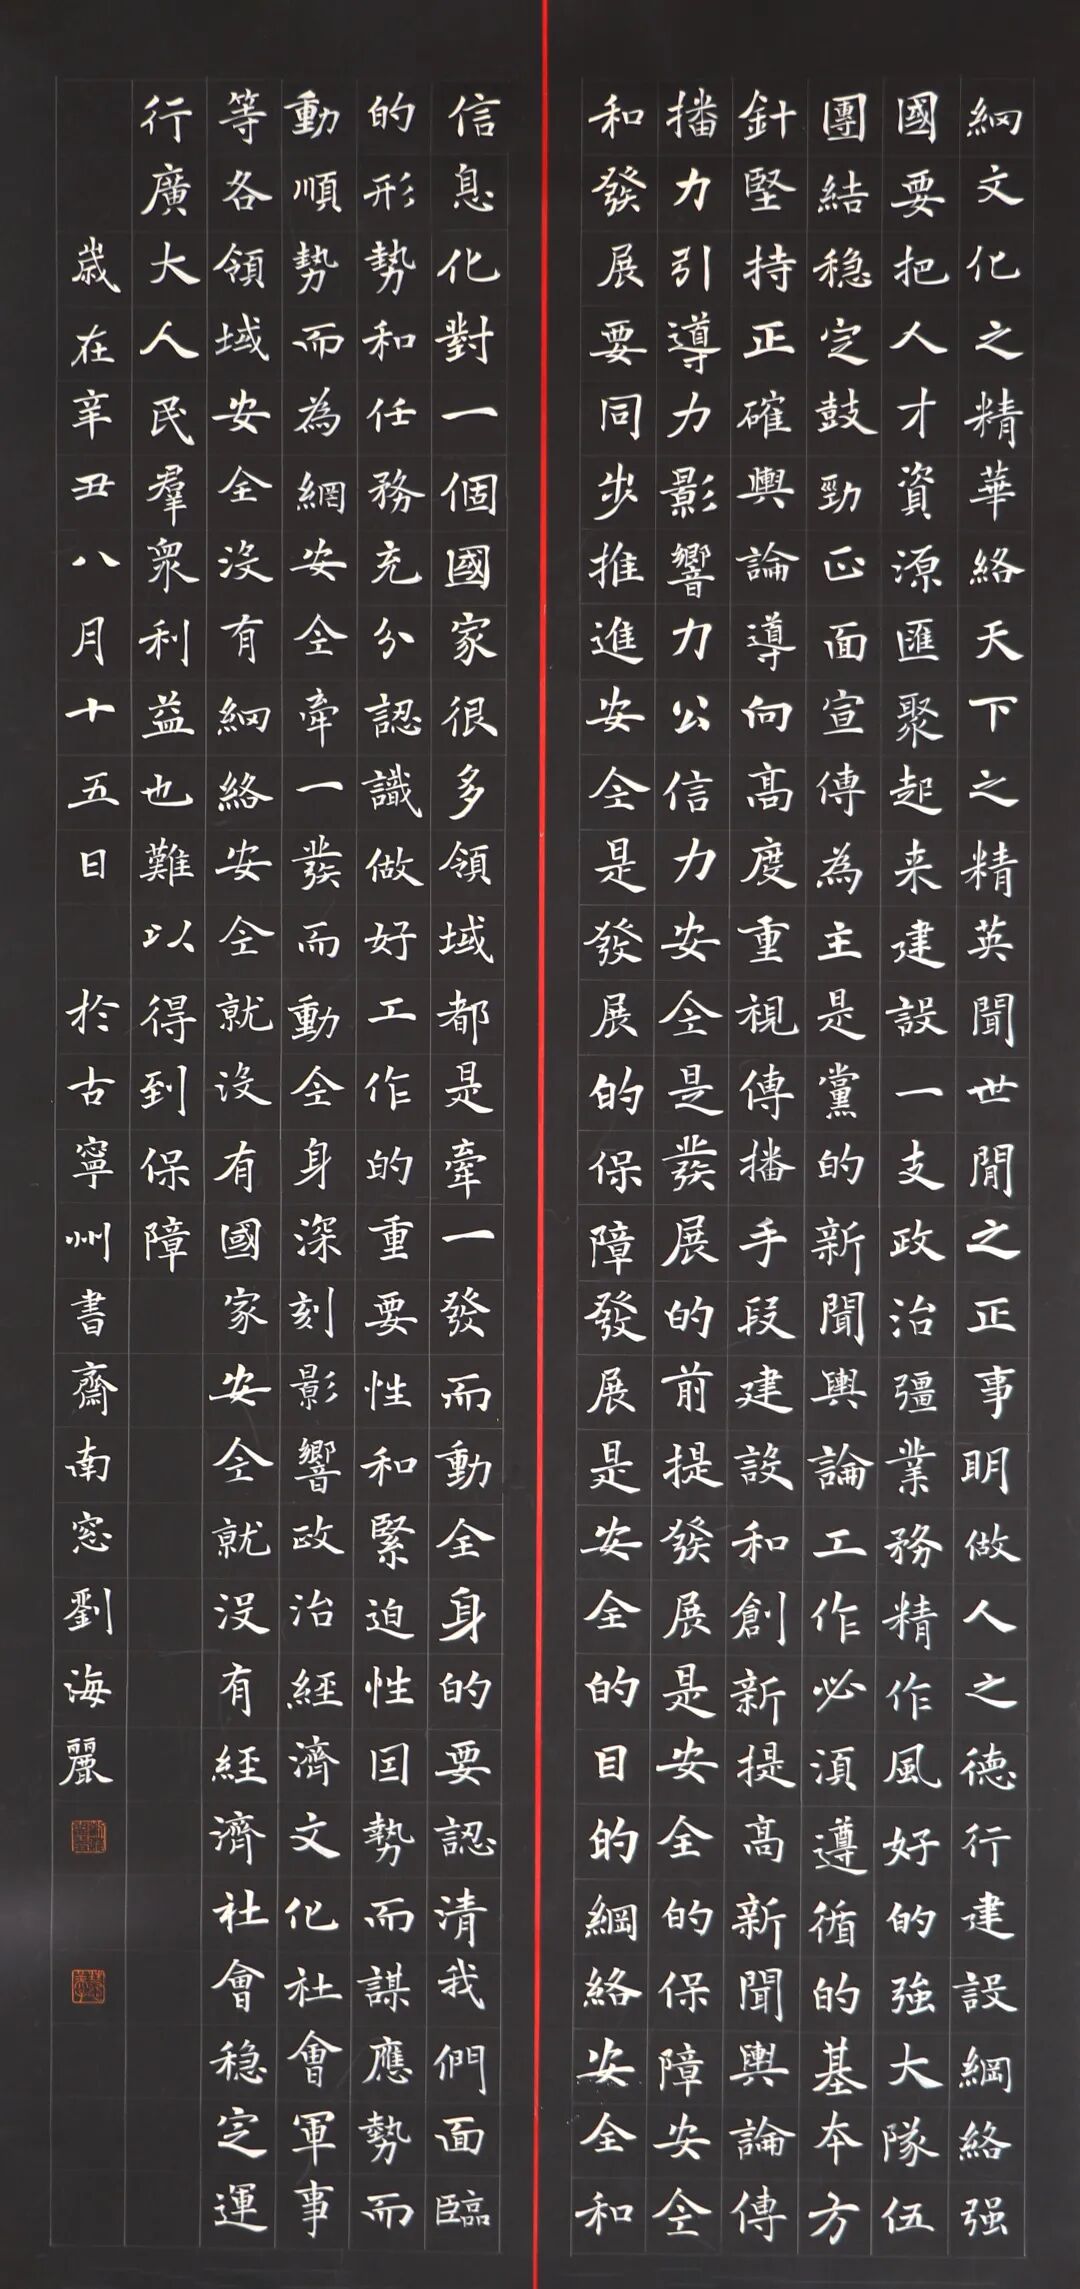 網文化之精華絡天下之精英聞世間之正事明做人之德行建設綱絡强
國要把人才資源匯聚起来建設一支政治彊業務精作風好的強大隊伍
團結穏定鼓勁正面宣傳為主是黨的新聞輿論工作必須遵循的基本方
針堅持正確輿論導向高度重視傳播手段建設和創新提高新聞輿論傳
播力引導力影響力公信力安全是發展的前提發展是安全的保障安全
和發展要同步推進安全是發展的保障發展是安全的目的綱絡安全和
信息化對一個國家很多領域都是牽一發而動全身的要認清我們面臨
的形勢和任務充分認識做好工作的重要性和緊迫性因勢而謀應勢而
動順勢而為網安全牽一發而動全身深刻影響政治經濟文化社會軍事
等各領域安全沒有網絡安全就沒有國家安全就沒有經濟社會穏定運
行廣大人民羣衆利益也難以得到保障
歲在辛丑八月十五日 於古寧州書齋南窓劉海麗